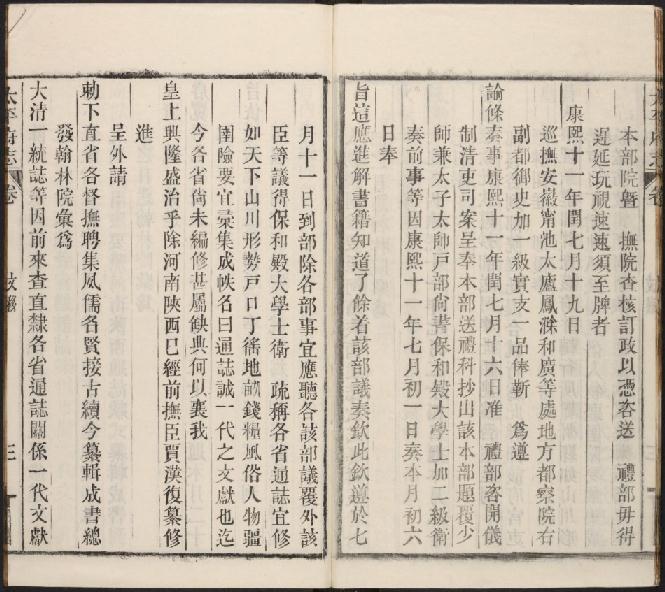 本部院曁　撫院查核訂政以憑咨送　禮部毋得
遲延玩視速速須至牌者
康熙十一年閏七月十九日
巡撫安徽甯池太廬鳳滁和廣等處地方都察院右
副都御史加一級實支一品俸靳　爲遵
諭條奏事康熙十一年閏七月十六日准　禮部咨開儀
制清吏司案呈奉本部送禮科抄出該本部題覆少
師兼太子太師戶部尚書保和殿大學士加二級衛
奏前事等因康熙十一年七月初一日奏本月初六
日奉
旨這應進解書籍知道了餘着該部議奏欽此欽遵於七
月十一日到部除各部事宜應聽各該部議覆外該
臣等議得保和殿大學士衛　疏稱各省通誌宜修
如天下山川形勢戶口丁徭地畝錢糧風俗人物疆
圉險要宜彚集成帙名曰通誌誠一代之文獻也迄
今各省尚未編修甚屬缺典何以襄我
皇上興隆盛治乎除河南陝西巳經前撫臣賈漢復纂修
進
呈外請
勅下直省各督撫聘集夙儒名賢接古續今纂輯成書總
發翰林院彙爲
大清一統誌等因前來查直隸各省通誌關係一代文獻
太平府志　卷　三